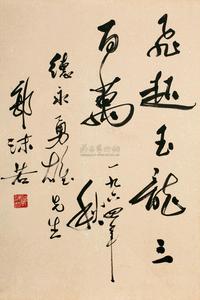 飞起玉龙三
百万
一九六四年秋
德永勇雄先生
郭沫若